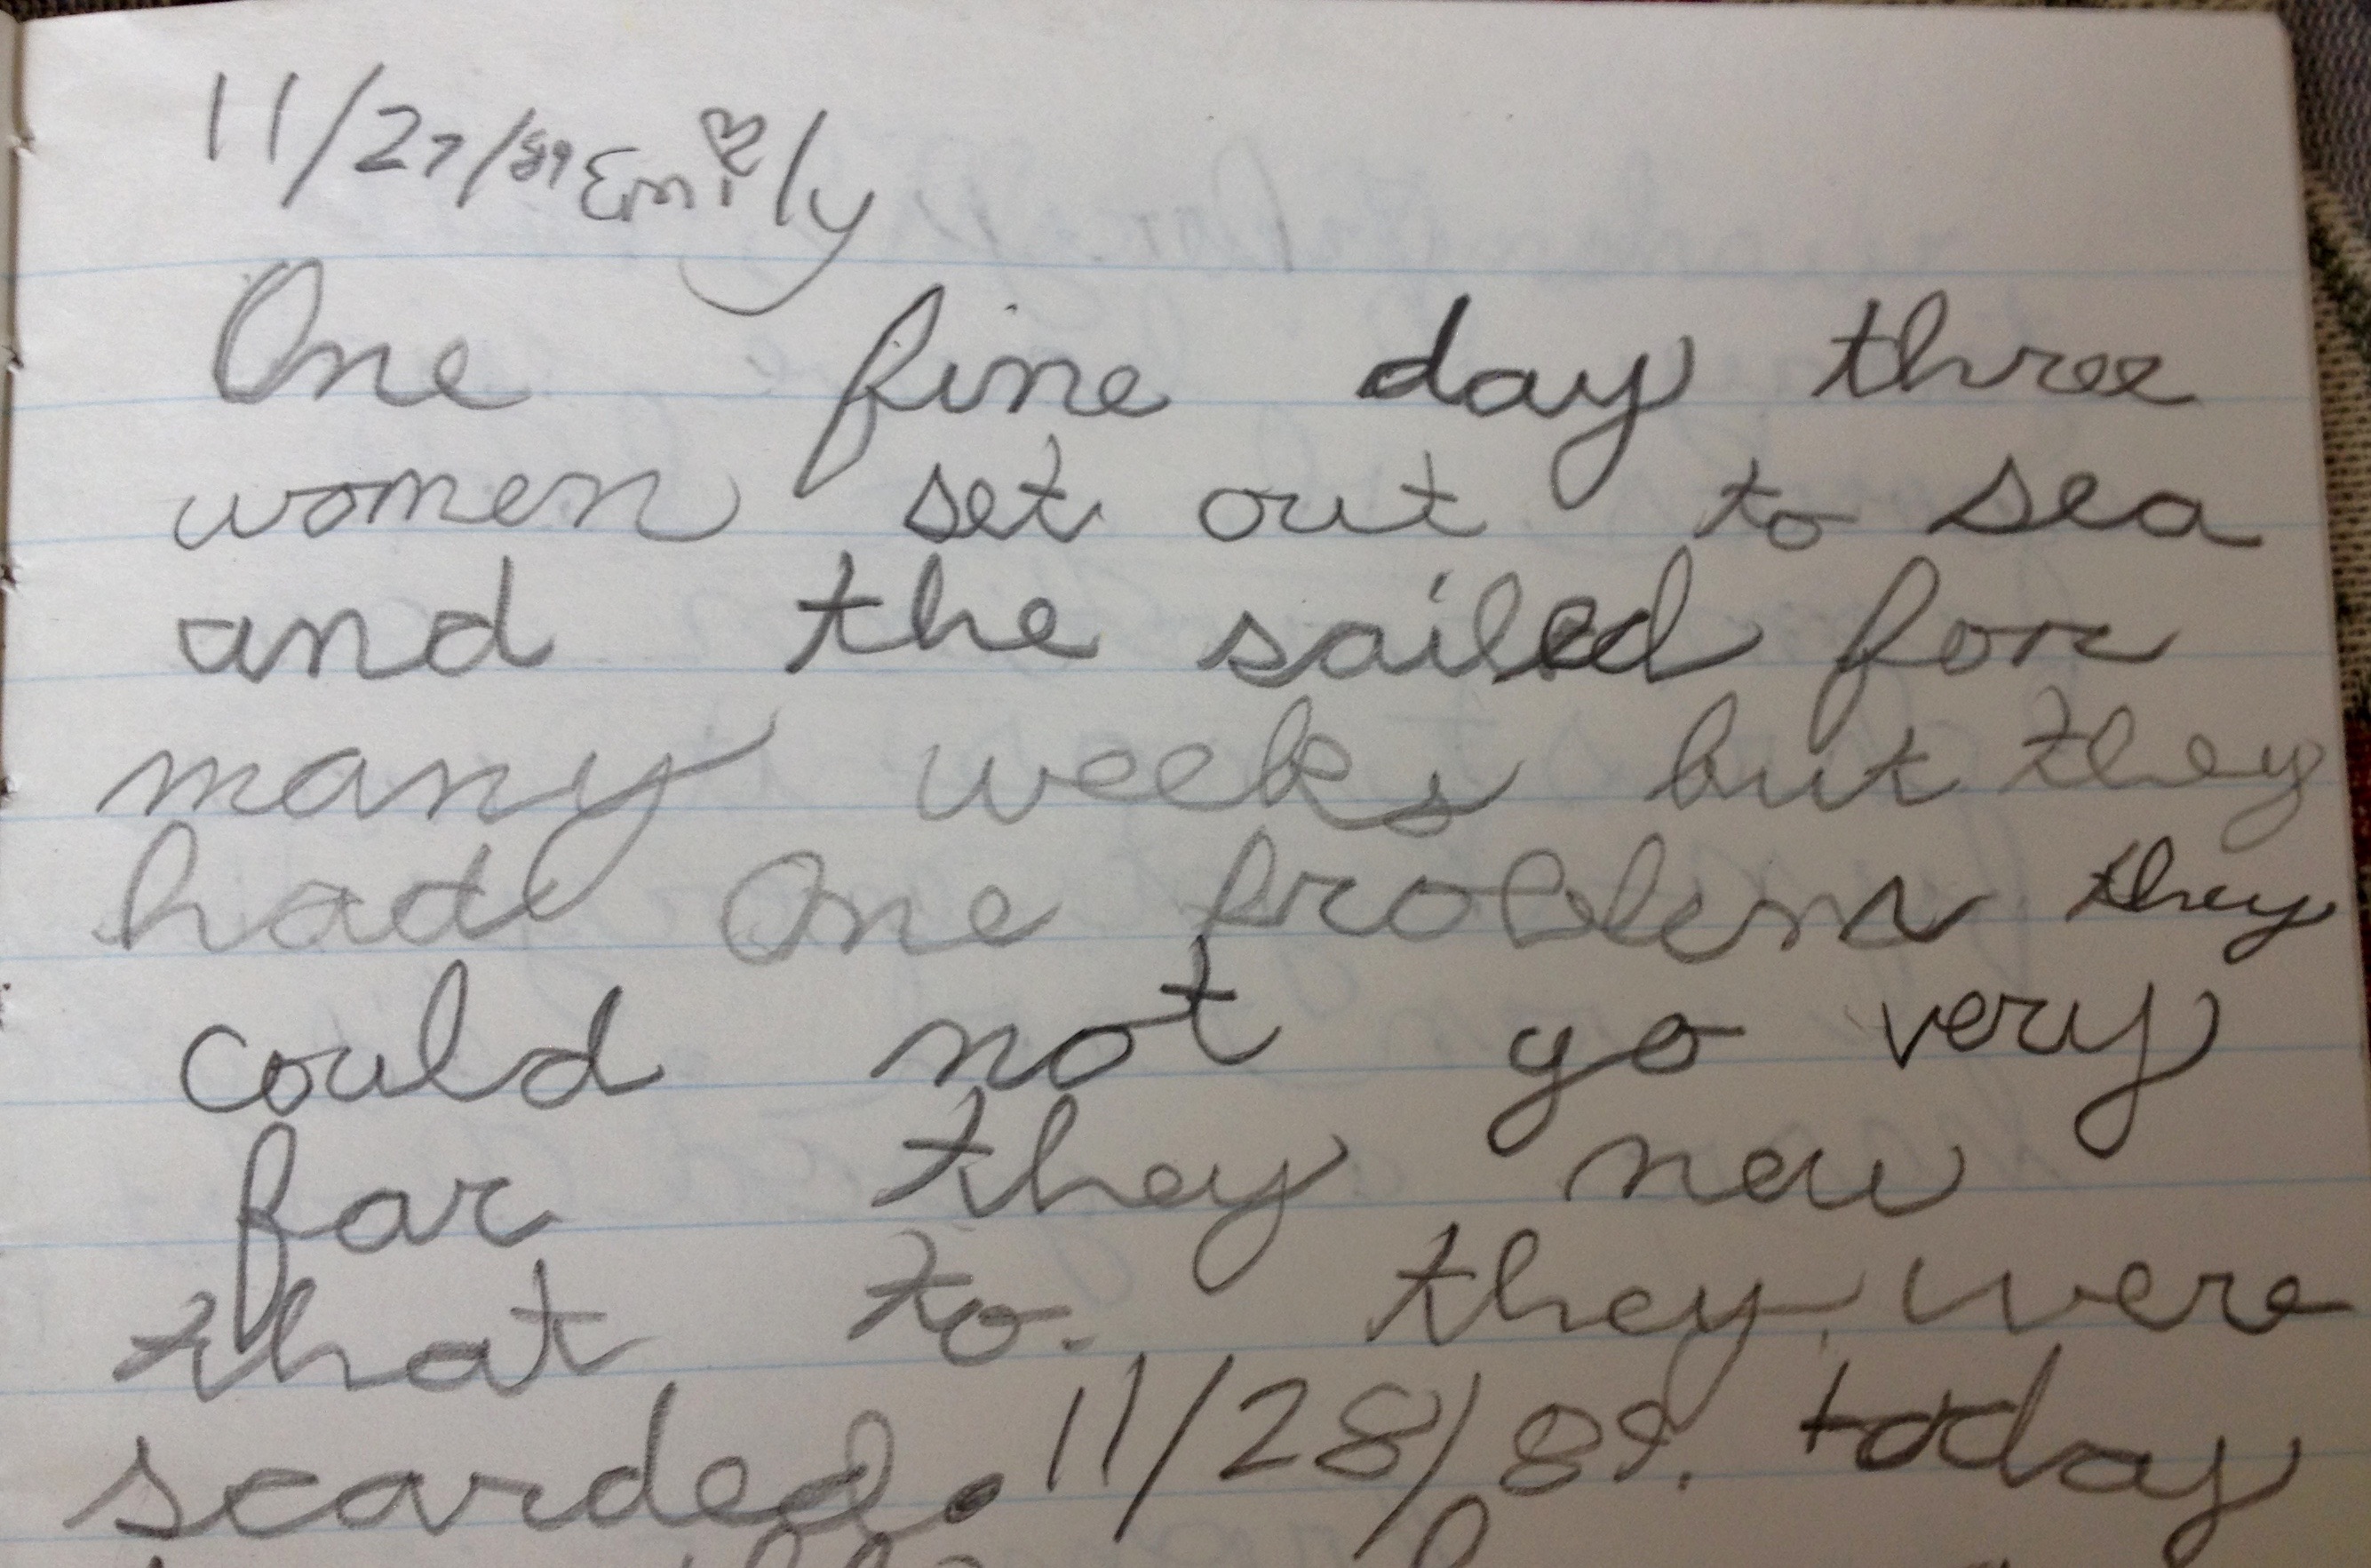 11/27/89 Emily
One fine day three
women set out to sea
and the sailed for
many weeks but they
had One problem they
could not go very
far they new
that to. they were
scarded. 11/28/89. today